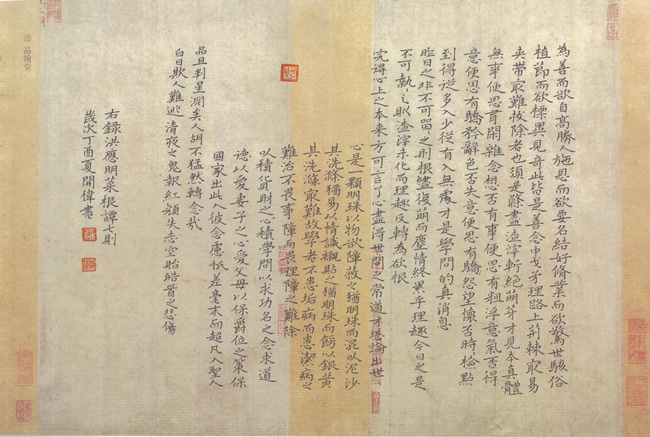 為善而欲自高勝人施恩而欲要名結好脩業而欲驚世駭俗
植節而欲標異見奇此皆是善念中戈矛理路上荊棘最易
夾帶最難拔除者也須是滌盡渣滓斬絕萌芽才見本真體
無事便思有閒雜念想否有事便思有粗浮意氣否得
意便思有驕矜辭色否失意便思有怨望情懷否時時檢點
到得從多入少從有入無處才是學問的真消息
昨日之非不可留留之則根燼復萌而塵情終累乎理趣今日之是
不可執執之則渣滓未化而理趣反轉為欲根
完得心上之本來方可言了心盡得世間之常道才堪論出世
心是一顆明珠以物欲障蔽之猶明珠而混以泥沙
其洗滌猶易以情識襯貼之猶明珠而飾以銀黃
其洗滌最難故學者不患垢病而患潔病之
難治不畏事障而畏理障之難除
以積貨財之心積學問以求功名之念求道
德以愛妻子之心愛父母以保爵位之策保
國家出此入彼念慮祇差毫末而超凡入聖人
品且判星淵矣人胡不猛然轉念哉
白日欺人難逃清夜之鬼報紅顏失志空貽皓首之悲傷
右錄洪應明菜根譚七則
歲次丁酉夏開偉書
品翰堂